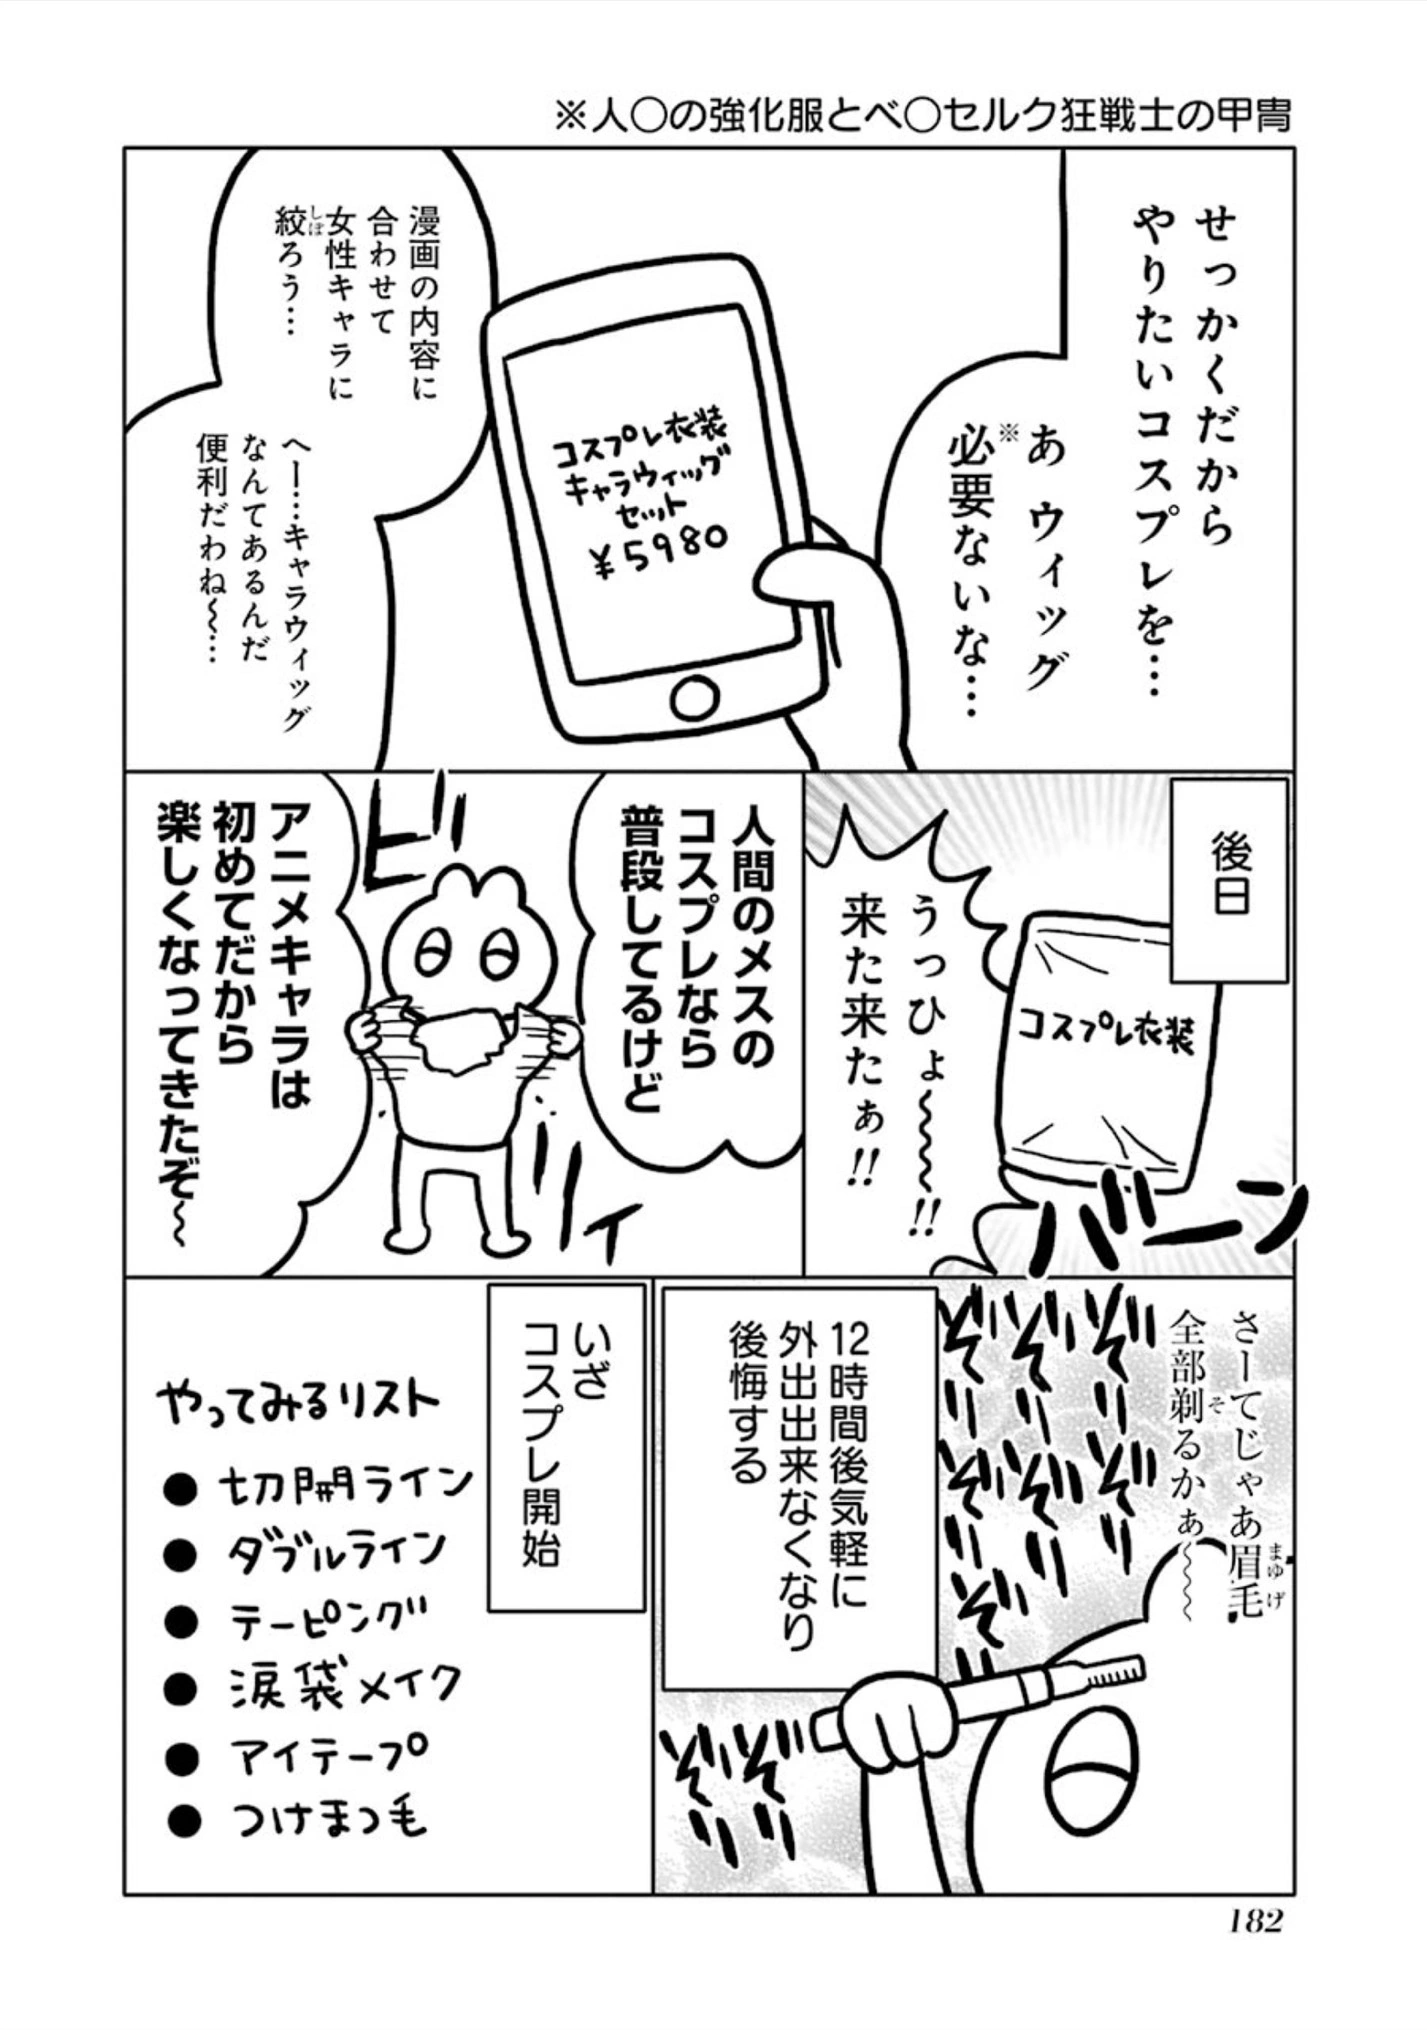 ※人○の強化服とベ○セルク狂戦士の甲冑
せっかくだから
やりたいコスプレを…
あ ウィッグ
※必要ないな…
コスプレ衣装
キャラウィッグ
セット
¥5980
漫画の内容に
合わせて
女性キャラに
絞ろう…
しぼ
へー…キャラウィッグ
なんてあるんだ
便利だわね〜…
後日
コスプレ衣装
うっひょ〜〜〜!!
来た来たぁ!!
バーン
人間のメスの
コスプレなら
普段してるけど
ビ
リイ
アニメキャラは
初めてだから
楽しくなってきたぞ〜
さーてじゃあ眉毛
まゆげ
全部剃るかぁ〜〜〜
そ
ぞりぞりぞ
ぞりぞり
ぞりぞり
12時間後気軽に
外出出来なくなり
後悔する
ぞり
ぞり
いざ
コスプレ開始
やってみるリスト
●切開ライン
●ダブルライン
●テーピング
●涙袋メイク
●アイテープ
●つけまつ毛
182